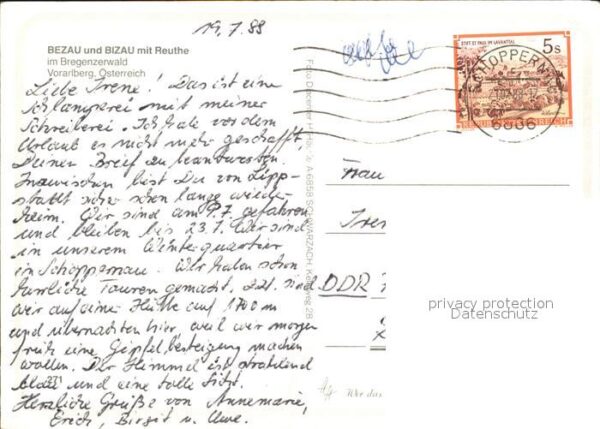 19.7.88
BEZAU und BIZAU mit Reuthe
im Bregenzerwald
Vorarlberg, Österreich
Liebe Irene! Das ist eine
Schlamperei mit meiner
Schreiberei. Ich habe vor dem
Urlaub es nicht mehr geschafft,
Deinen Brief zu beantworten.
Inzwischen bist Du von Lipp-
stadt schon lange wieder
heim. Wir sind am 9.7. gefahren
und bleiben bis 23.7. Wir sind
in unserem Winterquartier
in Schoppernau. Wir haben schon
herrliche Touren gemacht. Zzt. sind
wir auf einer Hütte auf 1700 m
und übernachten hier, weil wir morgen
früh eine Gipfelbesteigung machen
wollen. Der Himmel ist strahlend
blau und eine tolle Sicht.
Herzliche Grüße von Annemarie,
Erich, Birgit u. Uwe.
A-6858 SCHWARZACH
STIFT ST. PAUL IM LAVANTTAL
5s
SCHOPPERNAU
6886
Frau
Iren
DDR
privacy protection
Datenschutz
Wer das